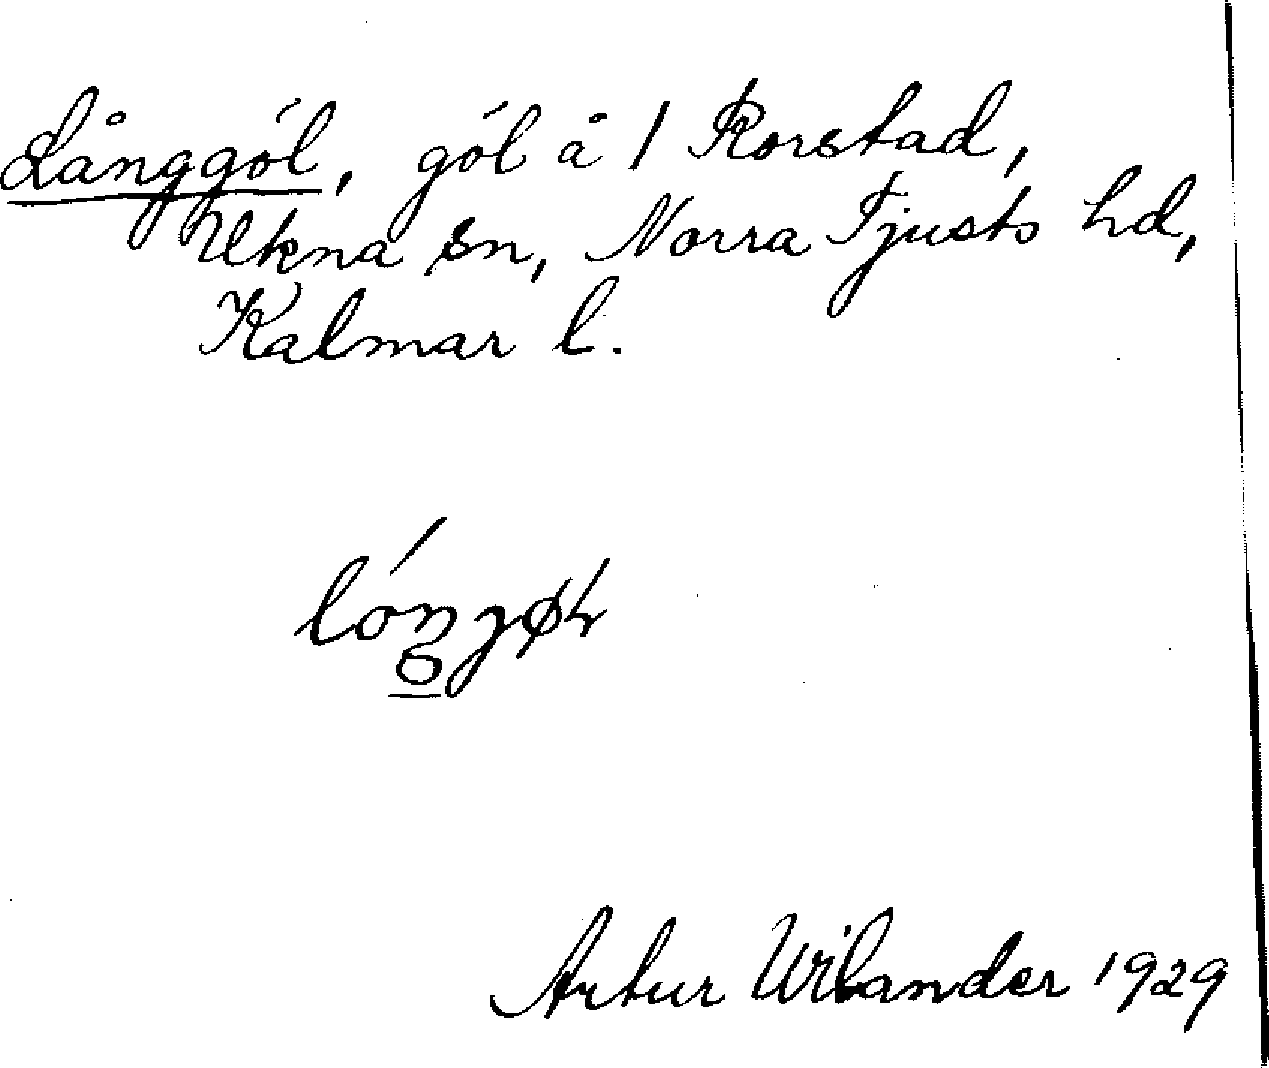 Långgól, gól å 1 Rorstad,
Ukna sn, Norra Tjusts hd,
Kalmar l.
Artur Wilander 1929